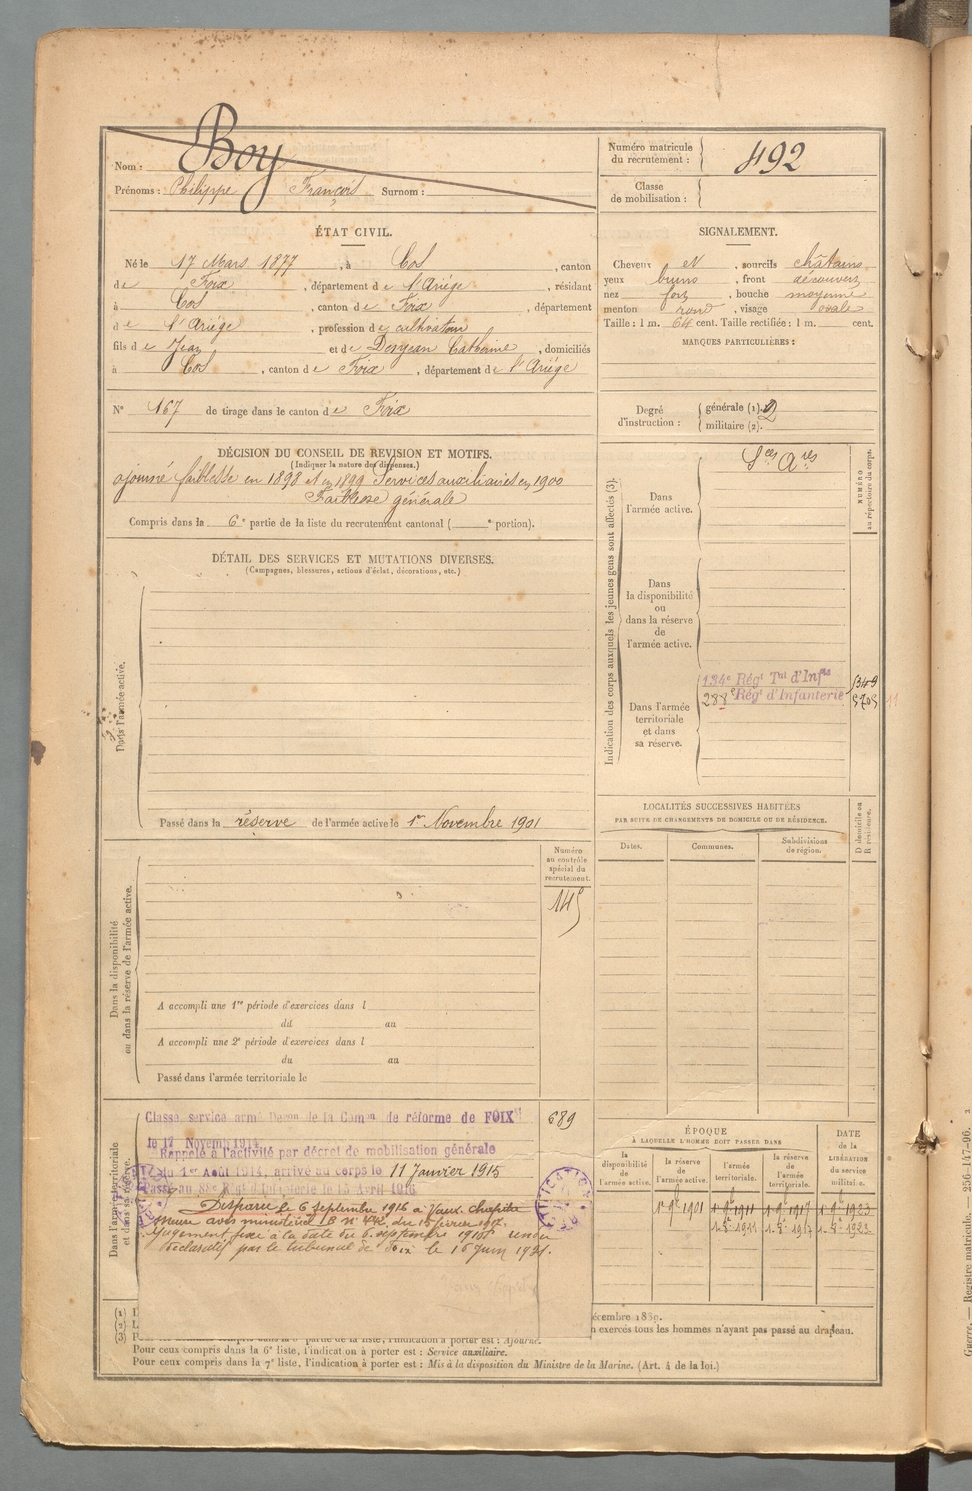 Nom : Boy
Prénoms : Philippe François Surnom :
Numéro matricule du recrutement : 492
Classe de mobilisation :
ÉTAT CIVIL.
Né le 17 Mars 1877, à Cos, canton
de Foix, département de l'Ariège, résidant
à Cos, canton de Foix, département
de l'Ariège, profession de cultivateur
fils de Jean et de Catherine, domiciliés
à Cos, canton de Foix, département de l'Ariège
N° 167 de tirage dans le canton de Foix
SIGNALEMENT.
Cheveux et, sourcils châtains
yeux bruns, front découvert
nez fort, bouche moyenne
menton rond, visage ovale
Taille : 1 m. 64 cent. Taille rectifiée : 1 m. cent.
MARQUES PARTICULIÈRES :
Degré d'instruction : générale (1). 2
militaire (2).
DÉCISION DU CONSEIL DE REVISION ET MOTIFS.
(Indiquer la nature des dispenses.)
ajourné faiblesse en 1898 et en 1899 Services auxiliaires en 1900
Faiblesse générale
Compris dans la 6e partie de la liste du recrutement cantonal ( e portion).
DÉTAIL DES SERVICES ET MUTATIONS DIVERSES.
(Campagnes, blessures, actions d'éclat, décorations, etc.)
Dans l'armée active.
Passé dans la réserve de l'armée active le 1er Novembre 1901
Indication des corps auxquels les jeunes gens sont affectés (3).
NUMÉRO au répertoire du corps.
Dans l'armée active.
Sces Ares
Dans la disponibilité ou dans la réserve de l'armée active.
Dans l'armée territoriale et dans sa réserve.
134e Régt Tal d'Infie
288e Régt d'Infanterie
5705
11
LOCALITÉS SUCCESSIVES HABITÉES
PAR SUITE DE CHANGEMENTS DE DOMICILE OU DE RÉSIDENCE.
D domicile ou R résidence.
Dates. Communes. Subdivisions de région.
Dans la disponibilité ou dans la réserve de l'armée active.
Numéro au contrôle spécial du recrutement.
A accompli une 1re période d'exercices dans l
du au
A accompli une 2e période d'exercices dans l
du au
Passé dans l'armée territoriale le
Dans l'armée territoriale et dans sa réserve.
689
Classé service armé Dson de la Comon de réforme de FOIX
le 17 Novemb 1914.
Rappelé à l'activité par décret de mobilisation générale
du 1er Août 1914, arrivé au corps le 11 Janvier 1915
Passé au 88e Régt d'Infanterie le 15 Avril 1916
Disparu le 6 septembre 1916 à Vaux Chapitre
avis ministériel du 15 février 1917.
Jugement fixé à la date du 6 septembre 1916 rendu
déclaratif par le tribunal de Foix le 16 Juin 1921.
ÉPOQUE
À LAQUELLE L'HOMME DOIT PASSER DANS
DATE DE LA LIBÉRATION du service militaire.
la disponibilité de l'armée active. la réserve de l'armée active. l'armée territoriale. la réserve de l'armée territoriale.
décembre 1889.
n exercés tous les hommes n'ayant pas passé au drapeau.
l'indication à porter est : Ajourné.
Pour ceux compris dans la 6e liste, l'indication à porter est : Service auxiliaire.
Pour ceux compris dans la 7e liste, l'indication à porter est : Mis à la disposition du Ministre de la Marine. (Art. 4 de la loi.)
Guerre. — Registre matricule. 256-147-96.